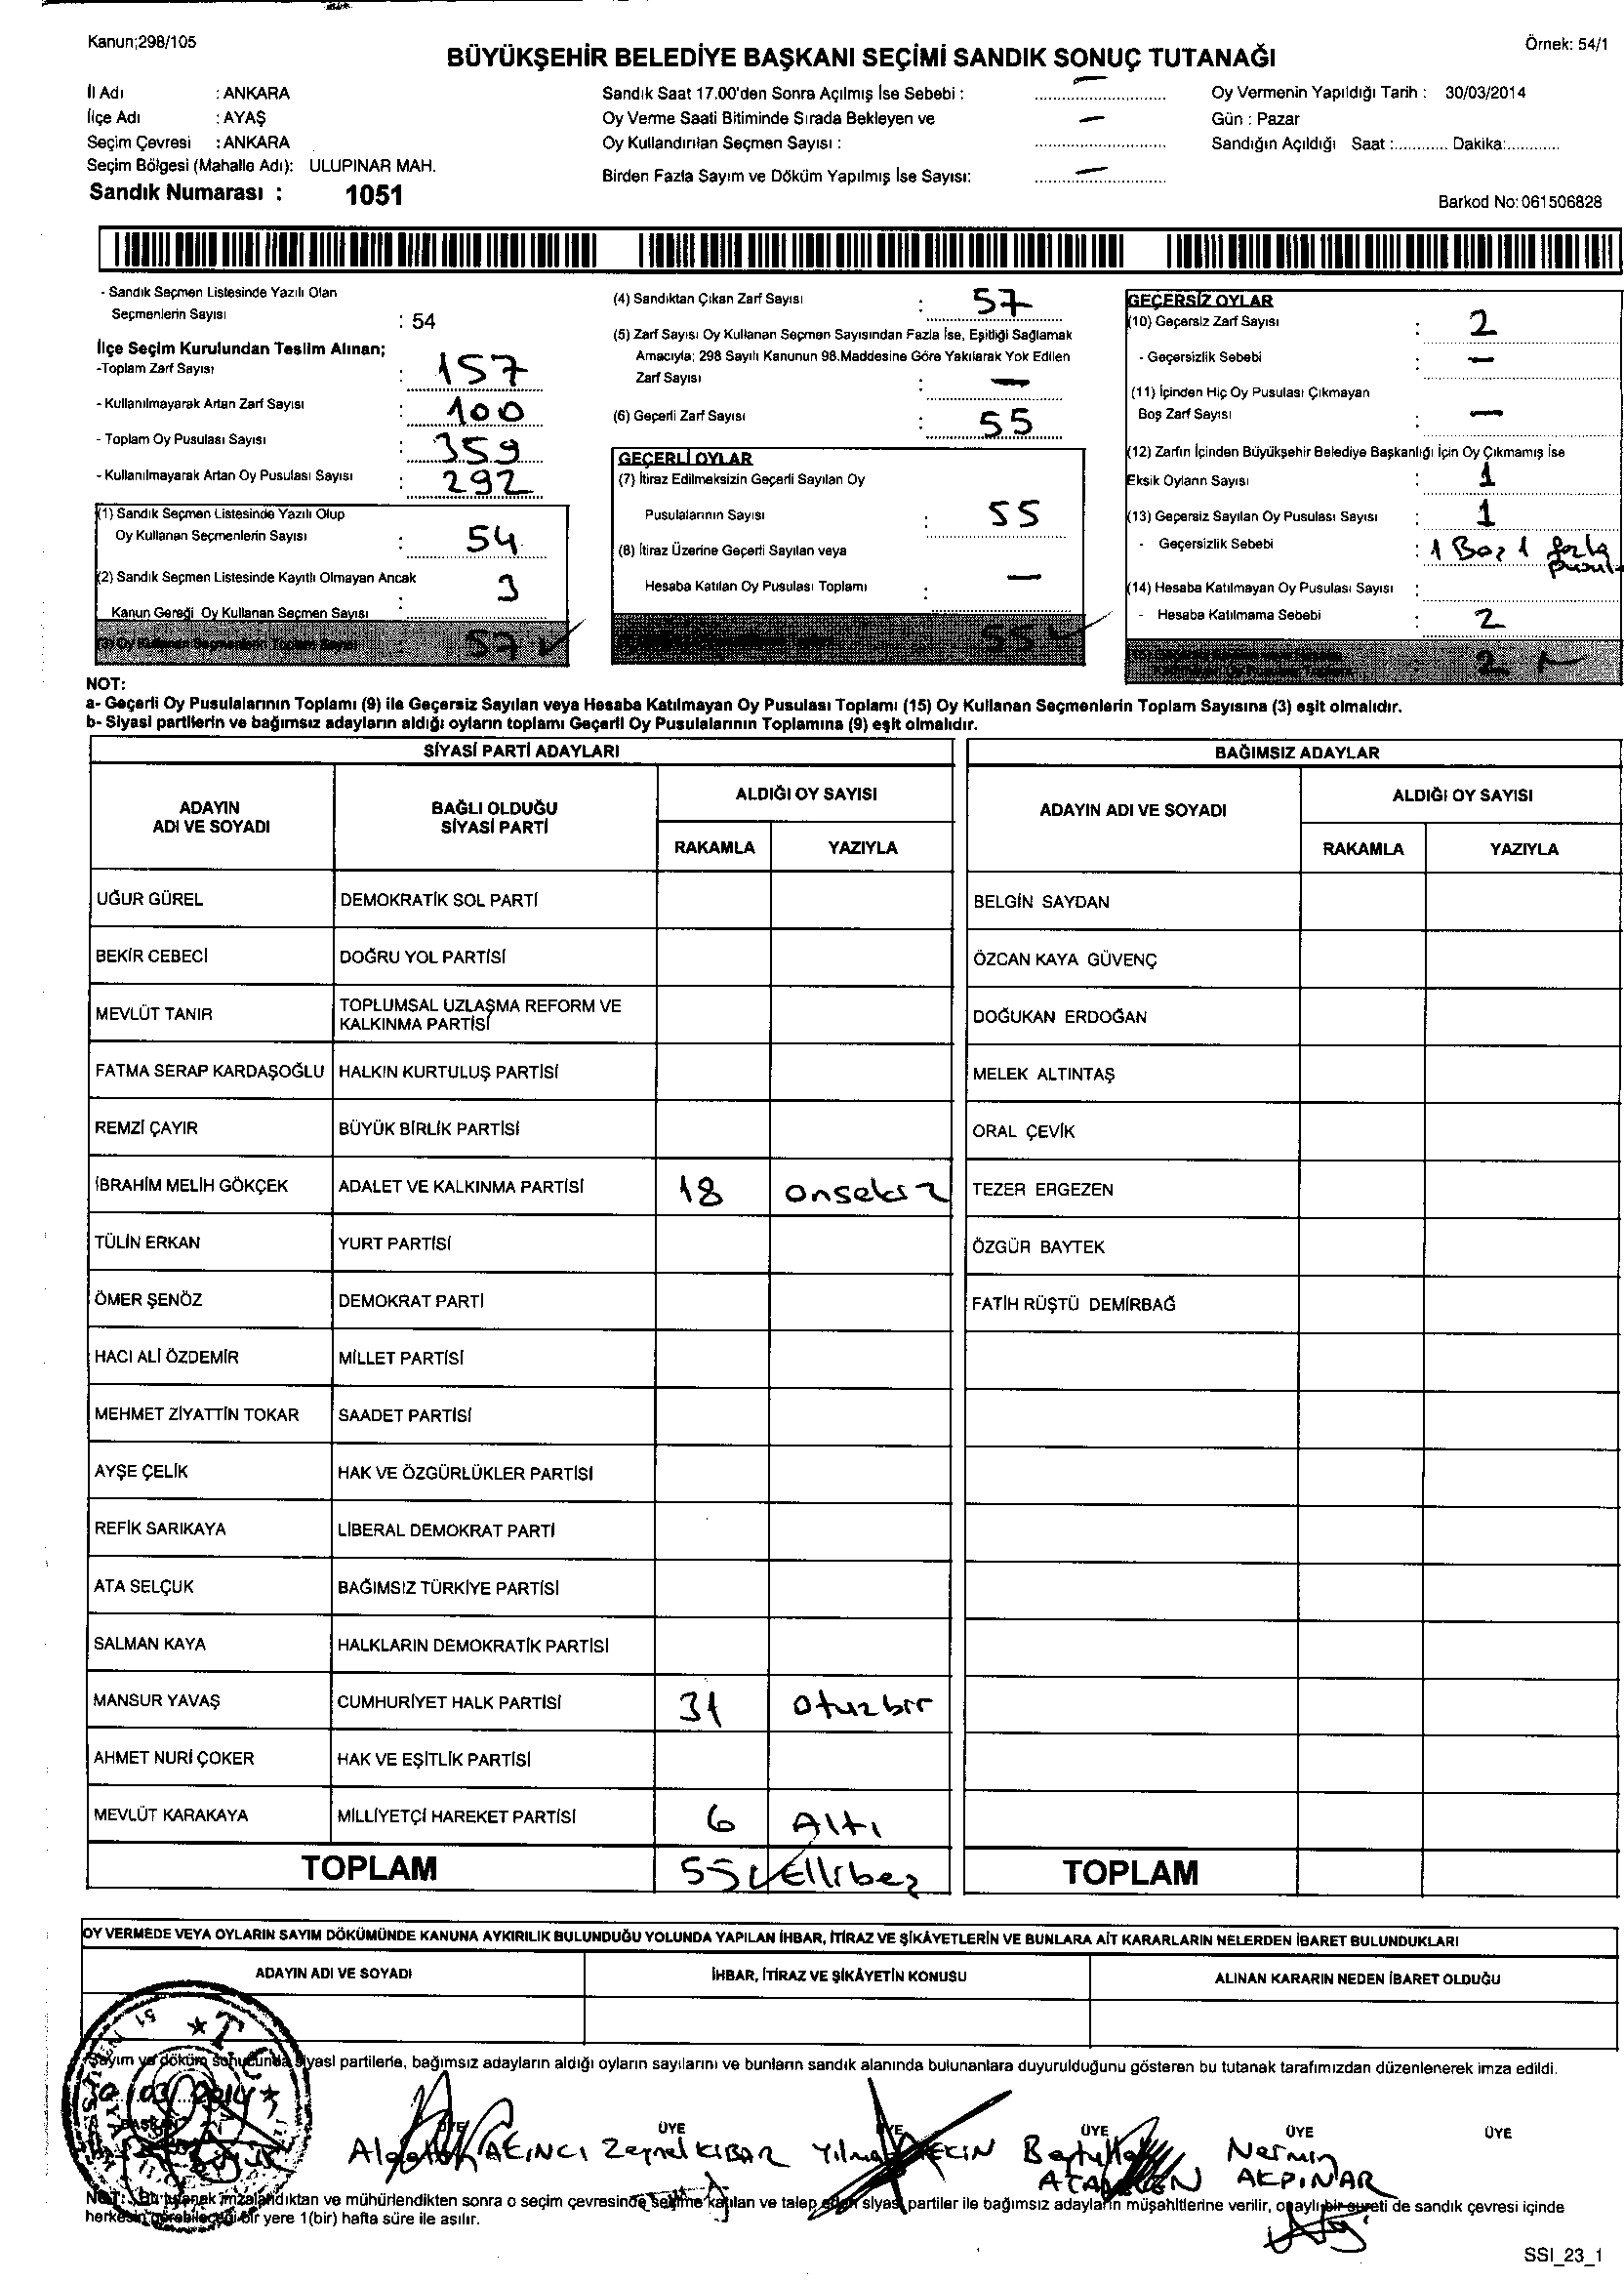 Kanun;298/105
Örnek: 54/1
BÜYÜKŞEHİR BELEDİYE BAŞKANI SEÇİMİ SANDIK SONUÇ TUTANAĞI
İl Adı : ANKARA
İlçe Adı : AYAŞ
Seçim Çevresi : ANKARA
Seçim Bölgesi (Mahalle Adı): ULUPINAR MAH.
Sandık Numarası : 1051
Sandık Saat 17.00'den Sonra Açılmış İse Sebebi : —
Oy Verme Saati Bitiminde Sırada Bekleyen ve
Oy Kullandırılan Seçmen Sayısı : —
Birden Fazla Sayım ve Döküm Yapılmış İse Sayısı: —
Oy Vermenin Yapıldığı Tarih : 30/03/2014
Gün : Pazar
Sandığın Açıldığı Saat :........... Dakika:...........
Barkod No:061506828
- Sandık Seçmen Listesinde Yazılı Olan
Seçmenlerin Sayısı : 54
İlçe Seçim Kurulundan Teslim Alınan;
-Toplam Zarf Sayısı : 157
- Kullanılmayarak Artan Zarf Sayısı : 100
- Toplam Oy Pusulası Sayısı : 359
- Kullanılmayarak Artan Oy Pusulası Sayısı : 292
(1) Sandık Seçmen Listesinde Yazılı Olup
Oy Kullanan Seçmenlerin Sayısı : 54
(2) Sandık Seçmen Listesinde Kayıtlı Olmayan Ancak
Kanun Gereği Oy Kullanan Seçmen Sayısı : 3
(3) Oy Kullanan Seçmenlerin Toplam Sayısı 57
(4) Sandıktan Çıkan Zarf Sayısı : 57
(5) Zarf Sayısı Oy Kullanan Seçmen Sayısından Fazla İse, Eşitliği Sağlamak
Amacıyla; 298 Sayılı Kanunun 98.Maddesine Göre Yakılarak Yok Edilen
Zarf Sayısı : —
(6) Geçerli Zarf Sayısı : 55
GEÇERLİ OYLAR
(7) İtiraz Edilmeksizin Geçerli Sayılan Oy
Pusulalarının Sayısı : 55
(8) İtiraz Üzerine Geçerli Sayılan veya
Hesaba Katılan Oy Pusulası Toplamı : —
55
GEÇERSİZ OYLAR
(10) Geçersiz Zarf Sayısı : 2
- Geçersizlik Sebebi : —
(11) İçinden Hiç Oy Pusulası Çıkmayan
Boş Zarf Sayısı : —
(12) Zarfın İçinden Büyükşehir Belediye Başkanlığı İçin Oy Çıkmamış İse
Eksik Oyların Sayısı : 1
(13) Geçersiz Sayılan Oy Pusulası Sayısı : 1
- Geçersizlik Sebebi : 1 Boş 1 fazla
pusul
(14) Hesaba Katılmayan Oy Pusulası Sayısı :
- Hesaba Katılmama Sebebi : 2
2
NOT:
a- Geçerli Oy Pusulalarının Toplamı (9) ile Geçersiz Sayılan veya Hesaba Katılmayan Oy Pusulası Toplamı (15) Oy Kullanan Seçmenlerin Toplam Sayısına (3) eşit olmalıdır.
b- Siyasi partilerin ve bağımsız adayların aldığı oyların toplamı Geçerli Oy Pusulalarının Toplamına (9) eşit olmalıdır.
SİYASİ PARTİ ADAYLARI
BAĞIMSIZ ADAYLAR
ADAYIN ADI VE SOYADI
BAĞLI OLDUĞU SİYASİ PARTİ
ALDIĞI OY SAYISI
RAKAMLA YAZIYLA
ADAYIN ADI VE SOYADI
ALDIĞI OY SAYISI
RAKAMLA YAZIYLA
UĞUR GÜREL DEMOKRATİK SOL PARTİ BELGİN SAYDAN
BEKİR CEBECİ DOĞRU YOL PARTİSİ ÖZCAN KAYA GÜVENÇ
MEVLÜT TANIR TOPLUMSAL UZLAŞMA REFORM VE KALKINMA PARTİSİ DOĞUKAN ERDOĞAN
FATMA SERAP KARDAŞOĞLU HALKIN KURTULUŞ PARTİSİ MELEK ALTINTAŞ
REMZİ ÇAYIR BÜYÜK BİRLİK PARTİSİ ORAL ÇEVİK
İBRAHİM MELİH GÖKÇEK ADALET VE KALKINMA PARTİSİ 18 onseksz TEZER ERGEZEN
TÜLİN ERKAN YURT PARTİSİ ÖZGÜR BAYTEK
ÖMER ŞENÖZ DEMOKRAT PARTİ FATİH RÜŞTÜ DEMİRBAĞ
HACI ALİ ÖZDEMİR MİLLET PARTİSİ
MEHMET ZİYATTİN TOKAR SAADET PARTİSİ
AYŞE ÇELİK HAK VE ÖZGÜRLÜKLER PARTİSİ
REFİK SARIKAYA LİBERAL DEMOKRAT PARTİ
ATA SELÇUK BAĞIMSIZ TÜRKİYE PARTİSİ
SALMAN KAYA HALKLARIN DEMOKRATİK PARTİSİ
MANSUR YAVAŞ CUMHURİYET HALK PARTİSİ 31 otuzbir
AHMET NURİ ÇOKER HAK VE EŞİTLİK PARTİSİ
MEVLÜT KARAKAYA MİLLİYETÇİ HAREKET PARTİSİ 6 Altı
TOPLAM 55 Ellibeş TOPLAM
OY VERMEDE VEYA OYLARIN SAYIM DÖKÜMÜNDE KANUNA AYKIRILIK BULUNDUĞU YOLUNDA YAPILAN İHBAR, İTİRAZ VE ŞİKÂYETLERİN VE BUNLARA AİT KARARLARIN NELERDEN İBARET BULUNDUKLARI
ADAYIN ADI VE SOYADI İHBAR, İTİRAZ VE ŞİKÂYETİN KONUSU ALINAN KARARIN NEDEN İBARET OLDUĞU
Sayım ve döküm sonucunda siyasi partilerle, bağımsız adayların aldığı oyların sayılarını ve bunların sandık alanında bulunanlara duyurulduğunu gösteren bu tutanak tarafımızdan düzenlenerek imza edildi.
30/03/2014
BAŞKAN ÜYE ÜYE ÜYE ÜYE ÜYE ÜYE
AKINCI Zeynel KIBAR EKİN Nermin
AKPINAR
NOT: Bu tutanak imzalandıktan ve mühürlendikten sonra o seçim çevresinde seçime katılan ve talep eden siyasi partiler ile bağımsız adayların müşahitlerine verilir, onaylı bir sureti de sandık çevresi içinde
herkesin görebileceği bir yere 1(bir) hafta süre ile asılır.
SSI_23_1